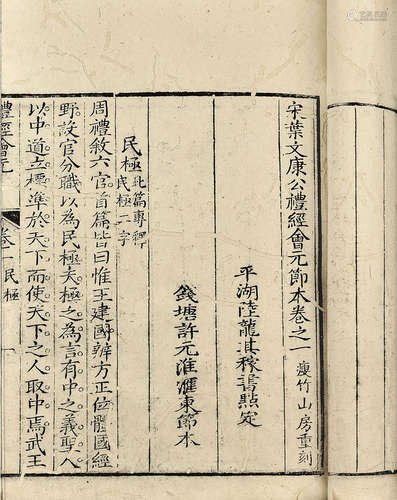 宋葉文康公禮經會元節本卷之一 瘦竹山房重刻
平湖陸龍其稼書點定
錢塘許元淮滙東節本
民極 此篇專釋民極二字
周禮敘六官首篇皆曰惟王建國辨方正位體國經
野設官分職以為民極夫極之為言有中之義聖人
以中道立標準於天下而使天下之人取中焉武王
禮經會元 卷一 民極